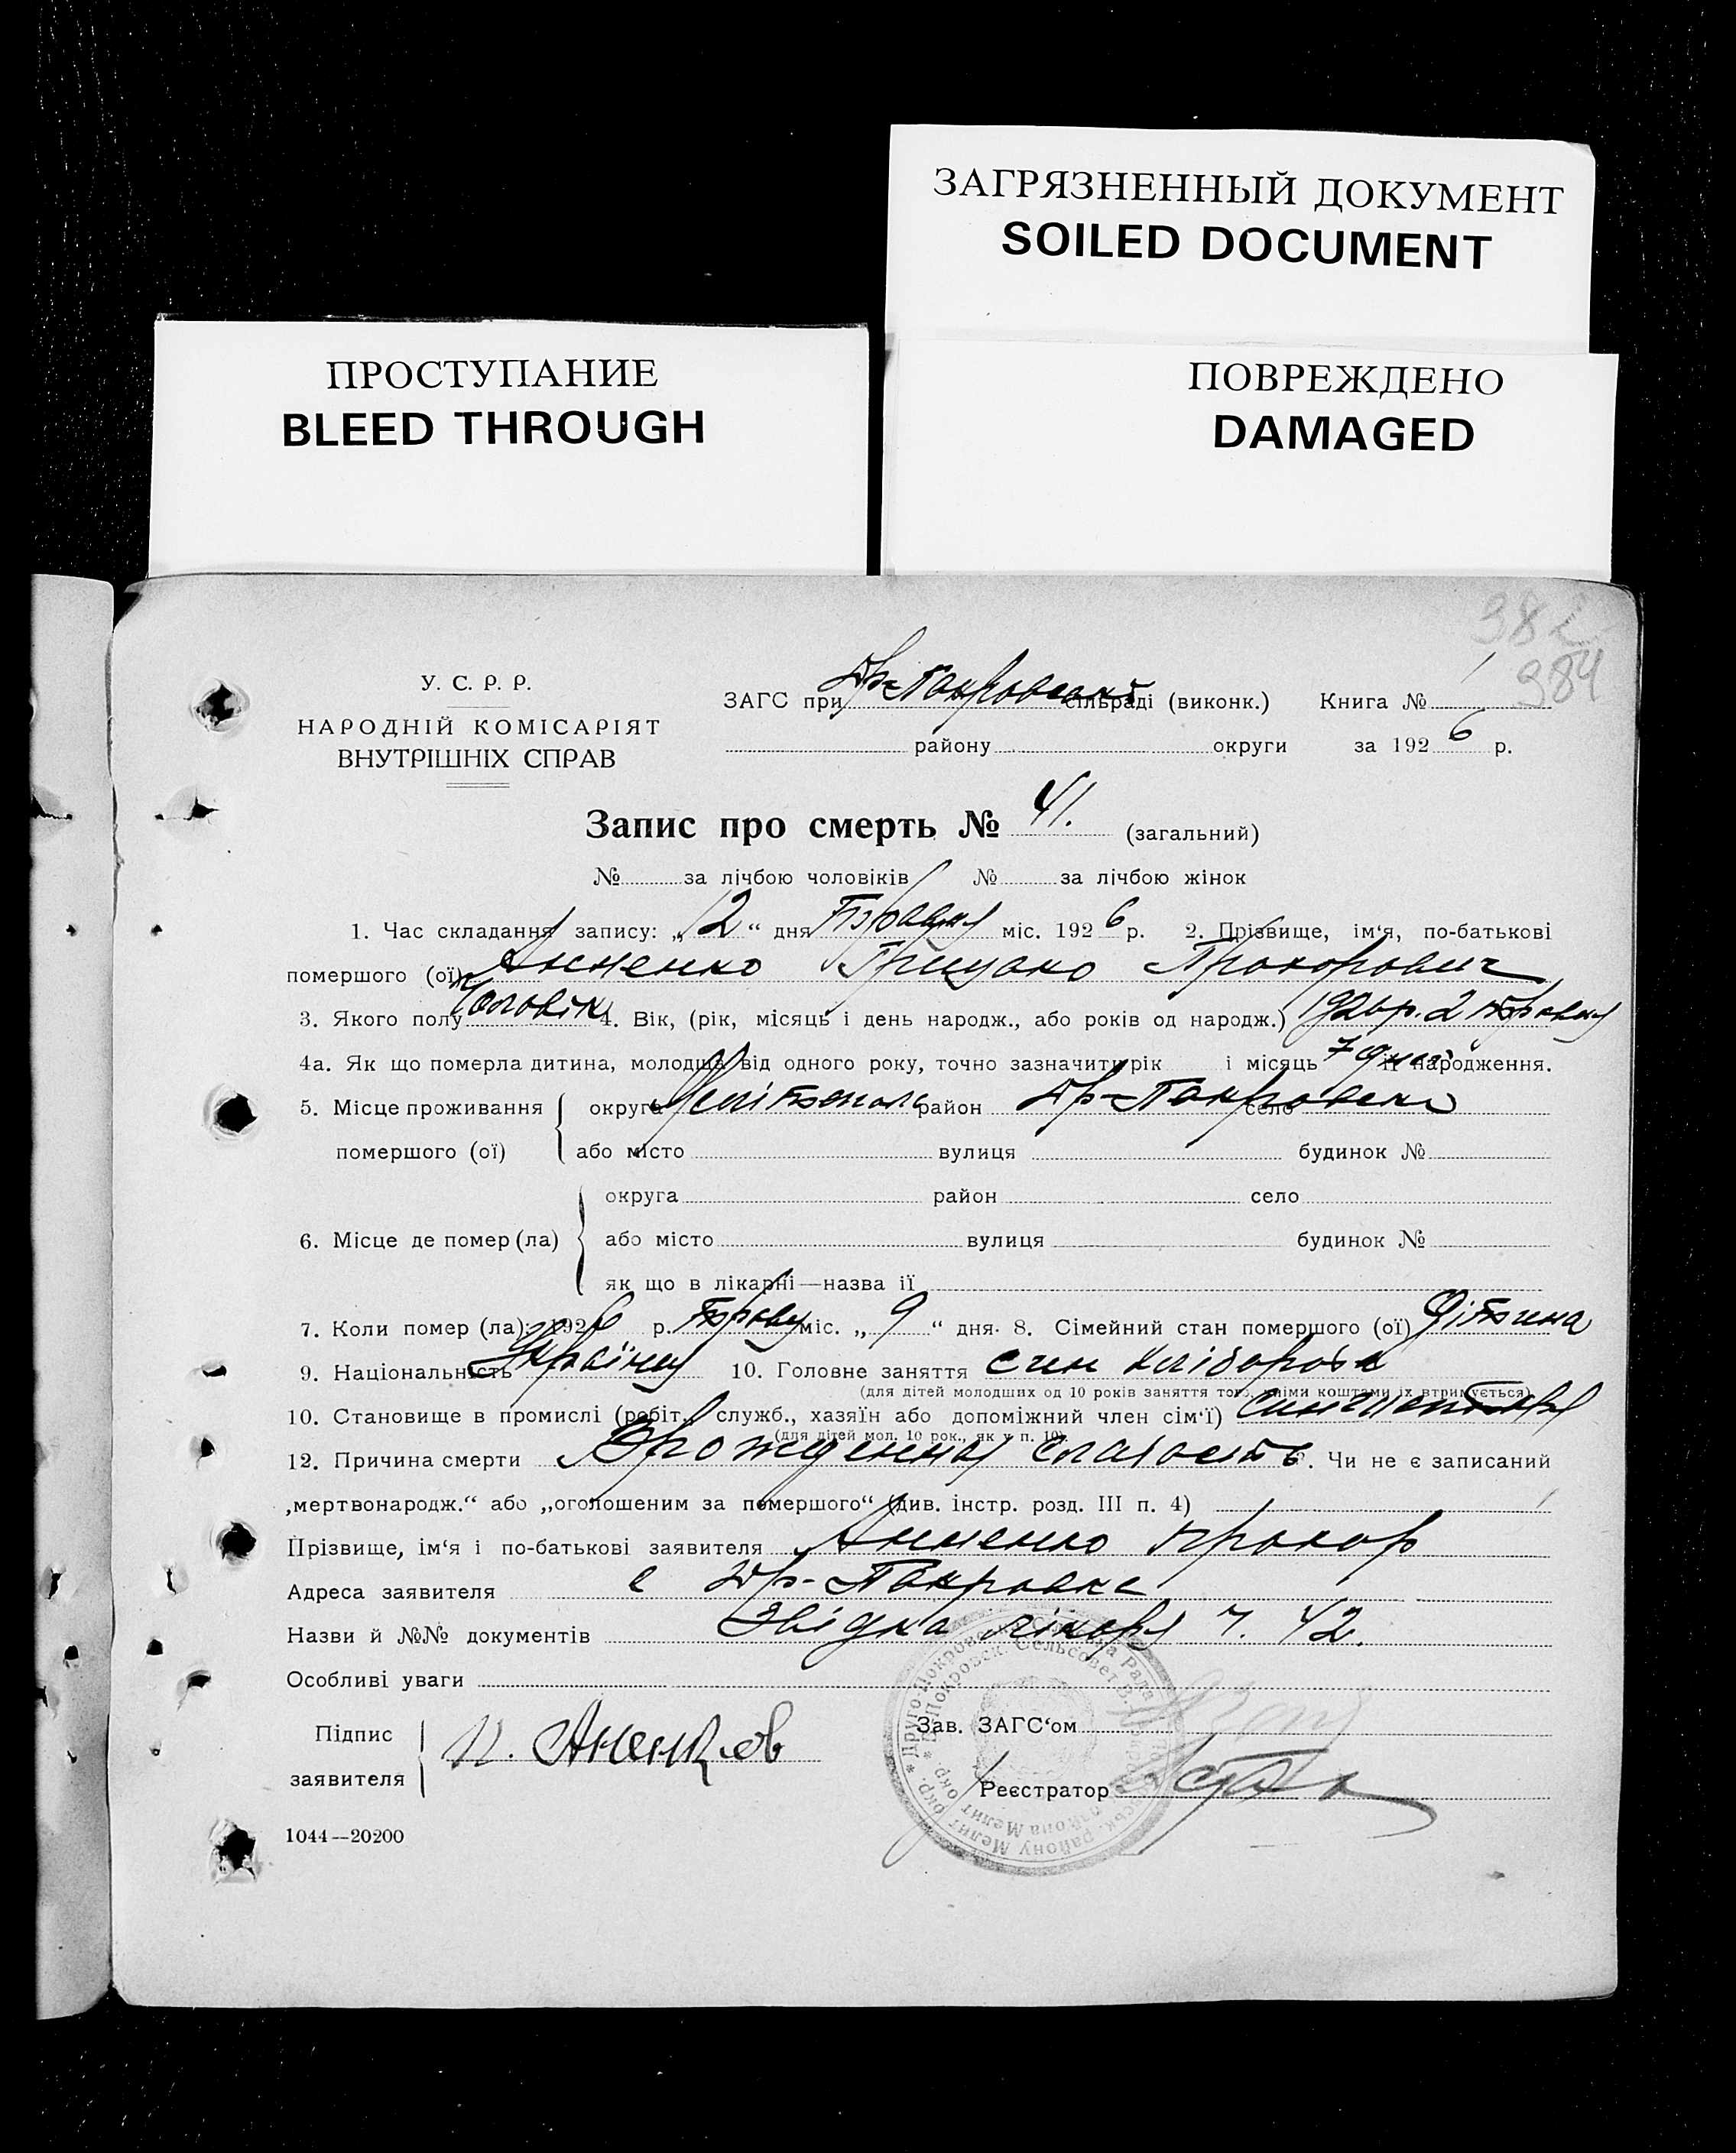 ЗАГРЯЗНЕННЫЙ ДОКУМЕНТ
SOILED DOCUMENT
ПРОСТУПАНИЕ
BLEED THROUGH
ПОВРЕЖДЕНО
DAMAGED
384
У. С. Р. Р.
НАРОДНІЙ КОМІСАРІЯТ
ВНУТРІШНІХ СПРАВ
ЗАГС при Др-Покровської сільраді (виконк.) Книга № 1
району округи за 1926 р.
Запис про смерть № 41. (загальний)
№ за лічбою чоловіків № за лічбою жінок
1. Час складання запису: „12“ дня Травня міс. 1926 р. 2. Прізвище, ім‘я, по-батькові
помершого (ої) Анненко Грицько Прокорович
3. Якого полу Чоловік 4. Вік, (рік, місяць і день народж., або років од народж.) 1926 р. 2 травня
4а. Як що померла дитина, молодша від одного року, точно зазначити рік і місяць 7 днів її народження.
5. Місце проживання помершого (ої) округа Мелітополь район Др-Покровка село
або місто вулиця будинок №
6. Місце де помер (ла) округа район село
або місто вулиця будинок №
як що в лікарні—назва її
7. Коли помер (ла): 1926 р. Травня міс. „9“ дня. 8. Сімейний стан помершого (ої) Дітина
9. Національність Україне 10. Головне заняття син хлібороба
(для дітей молодших од 10 років заняття того, чиїми коштами їх втримується)
10. Становище в промислі (робіт., служб., хазяїн або допоміжний член сім‘ї) син
(для дітей мол. 10 рок., як у п. 10)
12. Причина смерти Врожденная слабость. Чи не є записаний
„мертвонародж.“ або „оголошеним за помершого“ (див. інстр. розд. III п. 4)
Прізвище, ім‘я і по-батькові заявителя Анненко Прокор
Адреса заявителя с Др-Покровка
Назви й №№ документів Звідка лікаря Ч. 42.
Особливі уваги
Підпис заявителя П. Аненков
Зав. ЗАГС‘ом
Реєстратор
1044—20200